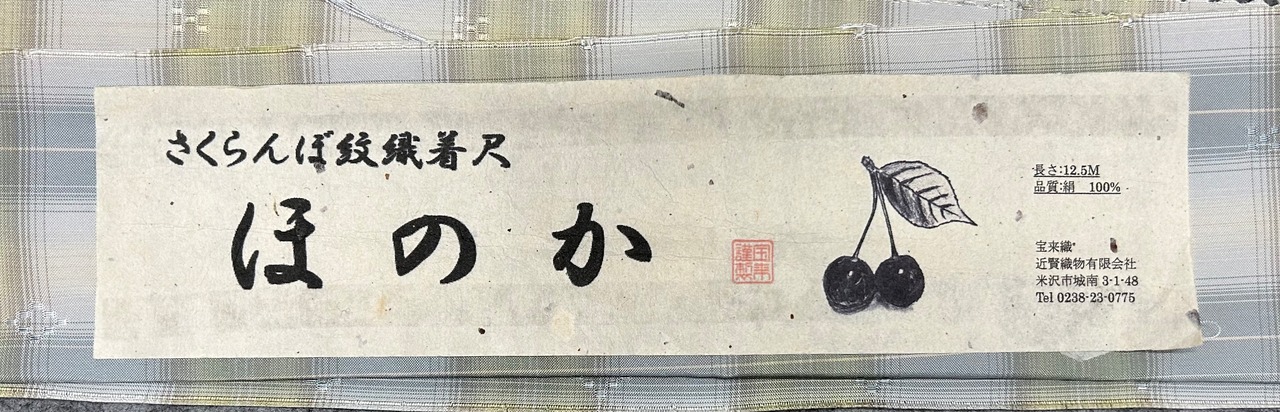 さくらんぼ紋織着尺
ほのか
宝来
謹製
長さ:12.5M
品質:絹 100%
宝来織
近賢織物有限会社
米沢市城南 3-1-48
Tel 0238-23-0775